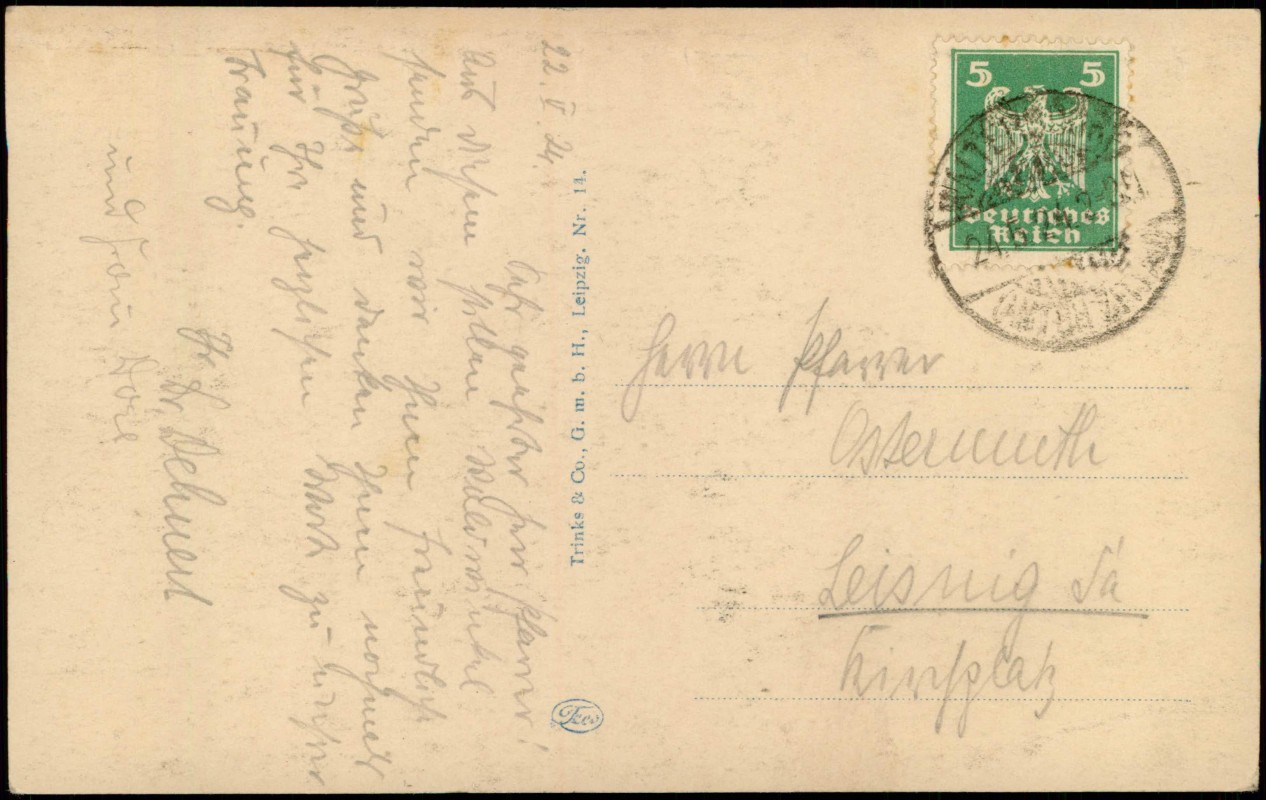 22. V. 24.
Sehr geehrter Herr Pfarrer!
Aus diesem stillen Waldwinkel
senden wir Ihnen freundliche
Grüße und danken Ihnen nochmals
für Ihr herzlichen Wort zu unserer
Trauung.
Ihr Dr. Dehnert
und Frau Dore
Trinks & Co., G. m. b. H., Leipzig. Nr. 14.
Teco
5 5
Deutsches
Reich
Herrn Pfarrer
Ostermuth
Leisnig Sa
Kirchplatz